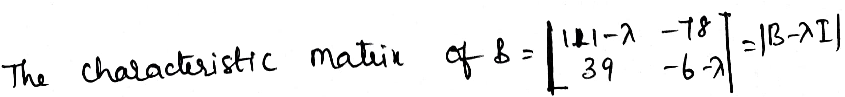 The characteristic matrix of B = [111-λ -78
39 -6-λ] = |B-λI|